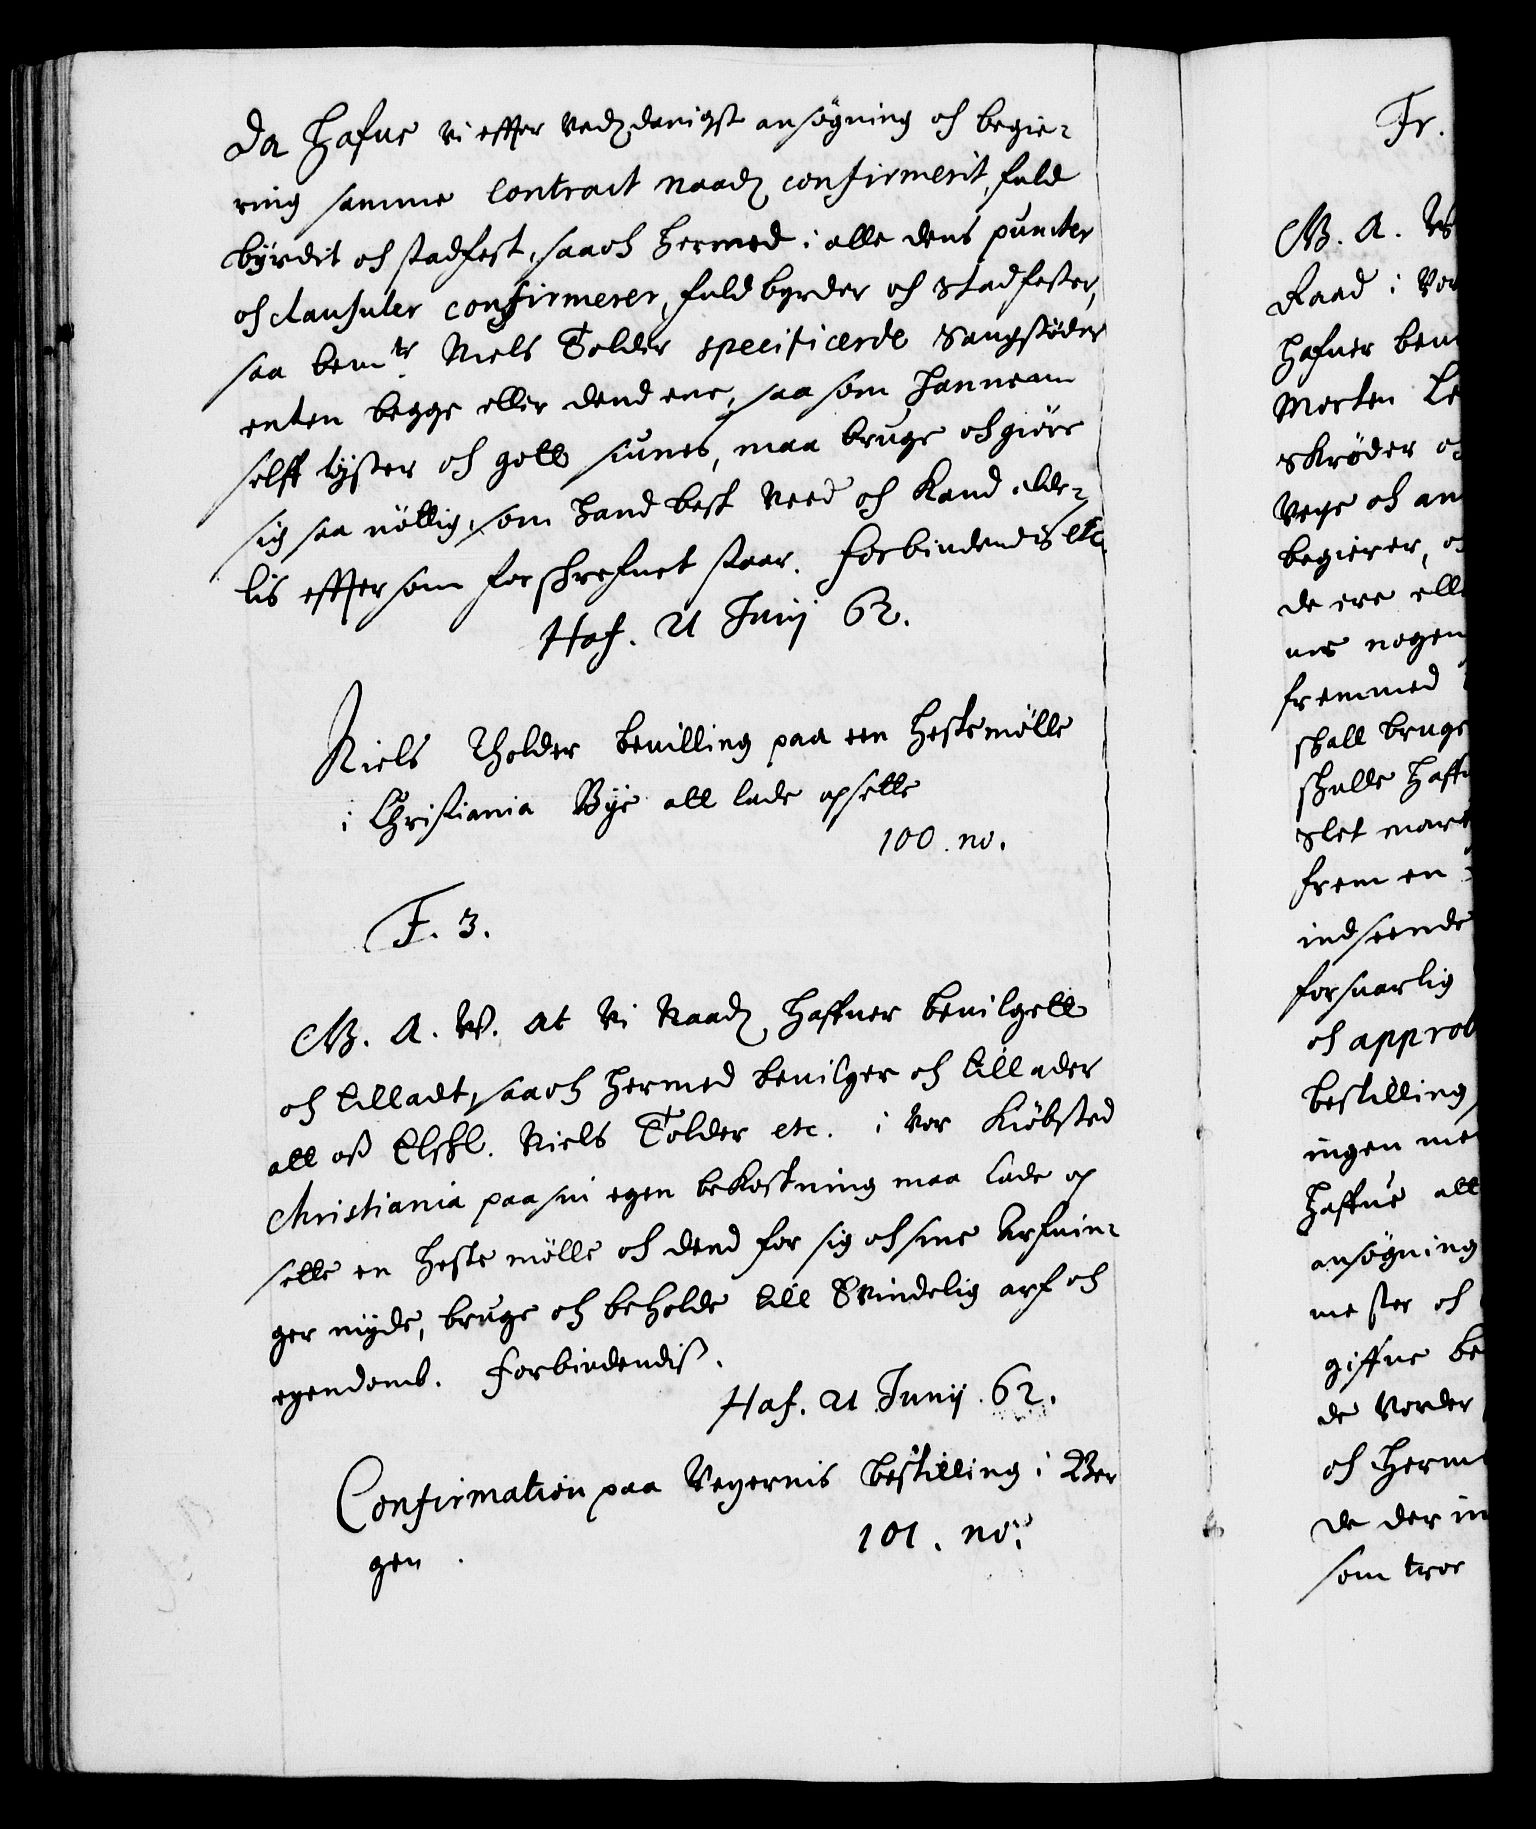 Da Hafue vi effter Ved danigst ansøgning och begie-
ring samme Contract Naad confirmerit, fuld
byrdit och stadfest, saa och hermed i alle dens puncter
och clausuler confirmerer, fuldbyrder och stadfester,
saa bemte Niels Tolder specificerde Saugstøder
enten begge eller dend ene, saa som hannem
selff lyster och gott siunes, maa bruge och giøre
sig saa nøttig, som hand best veed och kand, alde-
lis effter som forschrefuet staar. Forbiudendis etc
Haf. 21 Junij 62.
Niels Tholder Beuilling paa een Hestemølle
i Christiania Bye att lade opsette
100. no.
F. 3.
G. A. W. At Vi Naad haffuer beuilgett
och tilladt, saa och hermed beuilger och tillader
att oß Elskl. Niels Tolder etc. i vor Kiøbsted
Christiania paa sin egen bekostning maa lade op
sette en Heste mølle och dend for sig och sine Arfuin-
ger nyde, bruge och beholde till Evindelig arf och
egendomb. Forbiudendiß.
Haf. 21 Junij. 62.
Confirmation paa Veyernis bestilling i Ber
gen. 101. no.
Fr.
G. A. W
Raad i Vor
Hafuer bem
Morten Le
Skrøder oc
Veye och an
begierer, oc
de ere elle
nogen
fremmed
skall bruge
skulle haff
Slet mar
frem en
indseende
forsuarlig
och approb
bestilling
ingen me
Haffue att
ansøgning
mester och
giffne be
de Vorder
och herme
de der in
som troe